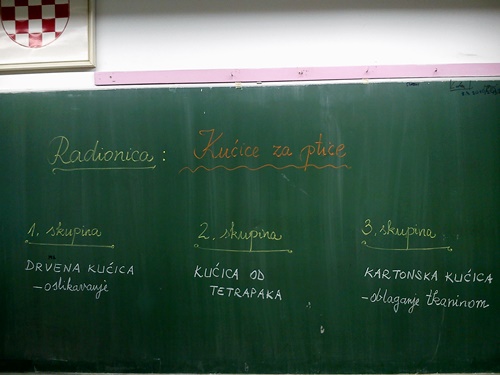 Radionica: Kućice za ptice
1. skupina
DRVENA KUĆICA
- oslikavanje
2. skupina
KUĆICA OD
TETRAPAKA
3. skupina
KARTONSKA KUĆICA
- oblaganje tkaninom